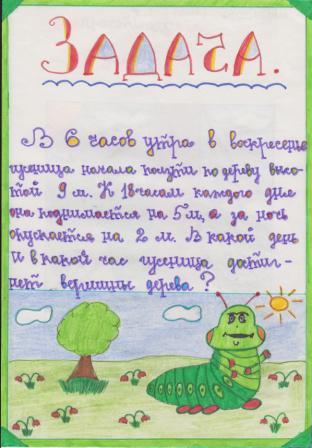 ЗАДАЧА.
В 6 часов утра в воскресенье
гусеница начала ползти по дереву высо-
той 9 м. К 18 часам каждого дня
она поднимается на 5 м, а за ночь
опускается на 2 м. В какой день
и в какой час гусеница достиг-
нет вершины дерева?